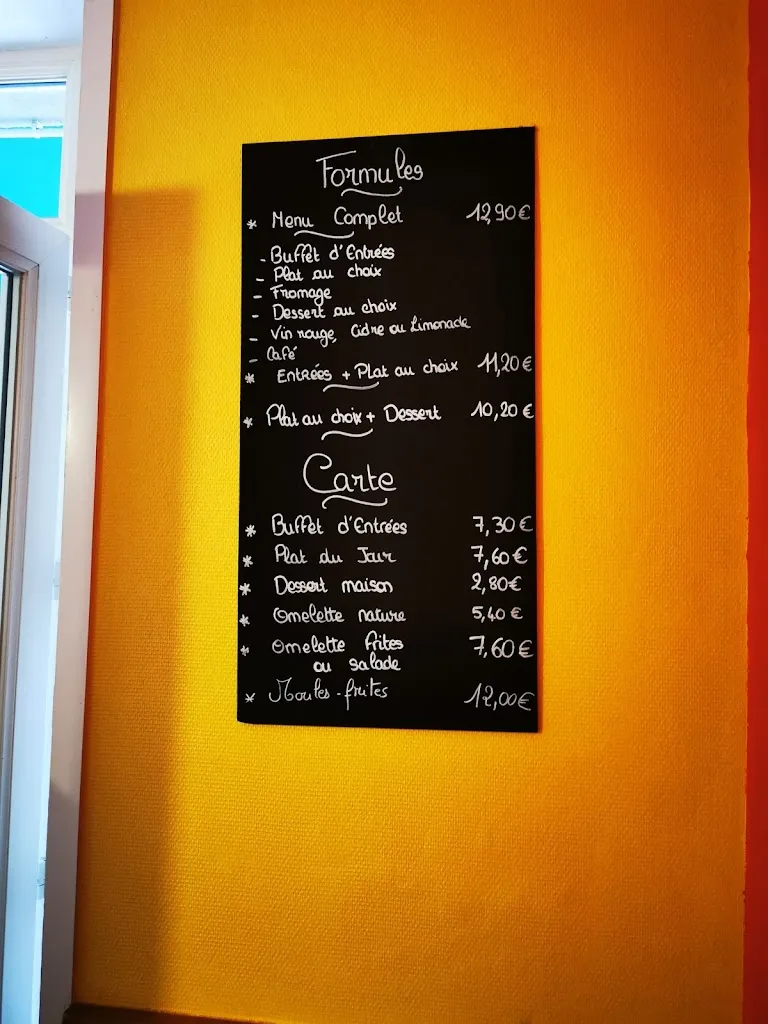 Formules
* Menu Complet 12,90€
- Buffet d'Entrées
- Plat au choix
- Fromage
- Dessert au choix
- Vin rouge, Cidre ou Limonade
- Café
* Entrées + Plat au choix 11,20€
* Plat au choix + Dessert 10,20€
Carte
* Buffet d'Entrées 7,30€
* Plat du Jour 7,60€
* Dessert maison 2,80€
* Omelette nature 5,40€
* Omelette frites 7,60€
ou salade
* Moules-frites 12,00€